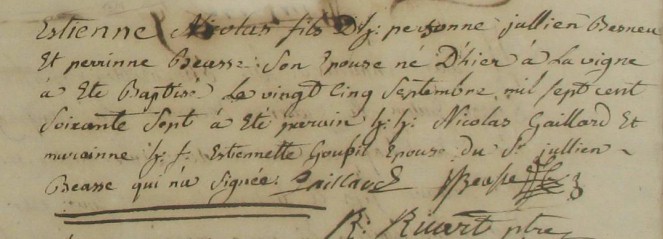 Estienne Nicolas fils D'h: personne jullien Besneu
Et perrinne Beasse Son Epouse né D'hier à La vigne
à Eté Baptisé Le vingt Cinq Septembre mil sept cent
Soixante Sept à Eté parain h: h: Nicolas Gaillard Et
marainne h: f. Estiennette Goupil Epouse du Sr jullien
Beasse qui n'a Signée. Gaillard JBeasse
R. Ruart ptre